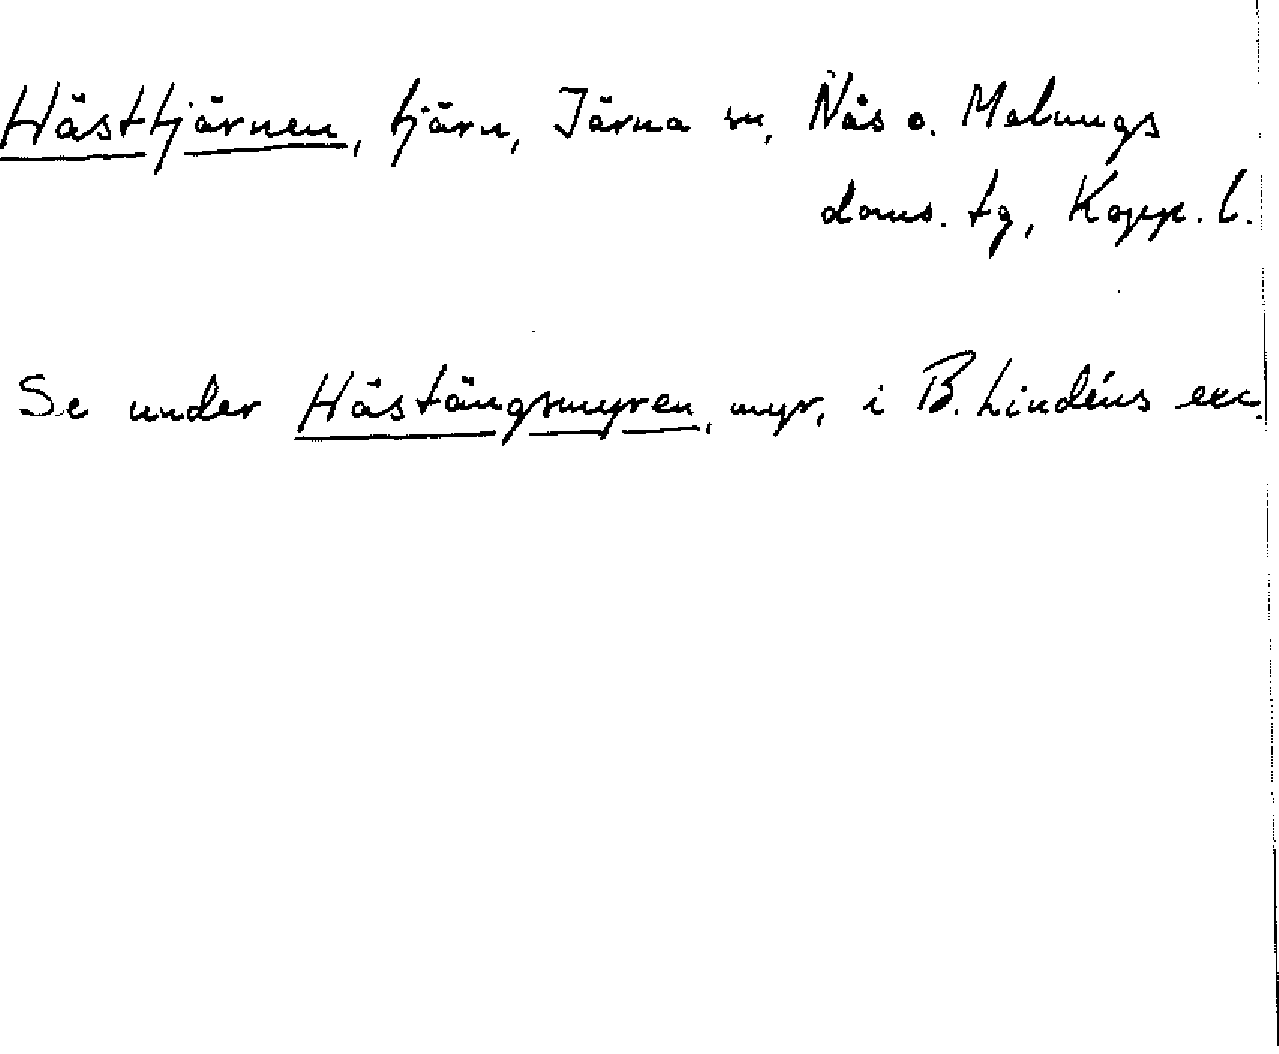 Hästtjärnen, tjärn, Järna sn, Nås o. Malungs
doms. tg, Kopp. l.
Se under Hästängsmyren, myr, i B. Lindéns exc.